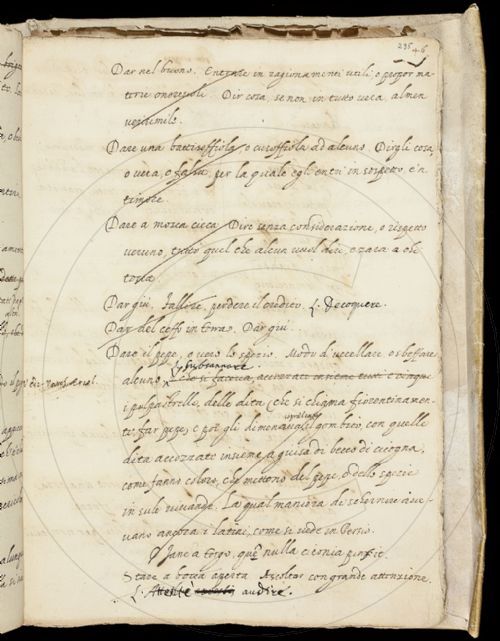 235 46
Dar nel buono. Entrare in ragionamenti utili, o propor ma
terie onorevoli. Dir cosa, se non in tutto vera, almen
verisimile.
Dare una battisoffiola, o cusoffiola ad alcuno. Dirgli cosa,
o vera, o falsa, per la quale egli entri in sospetto e 'n
timore.
Dare a mosca cieca. Dire senza considerazione, o rispetto
veruno, tutto quel che alcun vuol dire, e zara a chi
tocca.
Dar giù, fallire, perdere il credito. L. decoquere.
Dar del ceffo in terra. Dar giù.
Dare il pepe, o vero lo spezio. Modo d'uccellare, o sbeffare
alcuno. che si faceva, accozzati insieme tutti e cinque
i pulpastrelli, delle dita (che si chiama fiorentinamen
te far pepe, e poi gli dimenava il gomito, con quelle
dita accozzate insieme a guisa di becco di cicogna,
come fanno coloro, che mettono del pepe, o dello spezie
in sulle vivande. La qual maniera di schernire ave
vano ancora i latini, come si vede in Persio.
Jane a tergo, quē nulla ciconia pinsit.
Stare a bocca aperta. Ascoltar con grande attenzione.
L. audire.